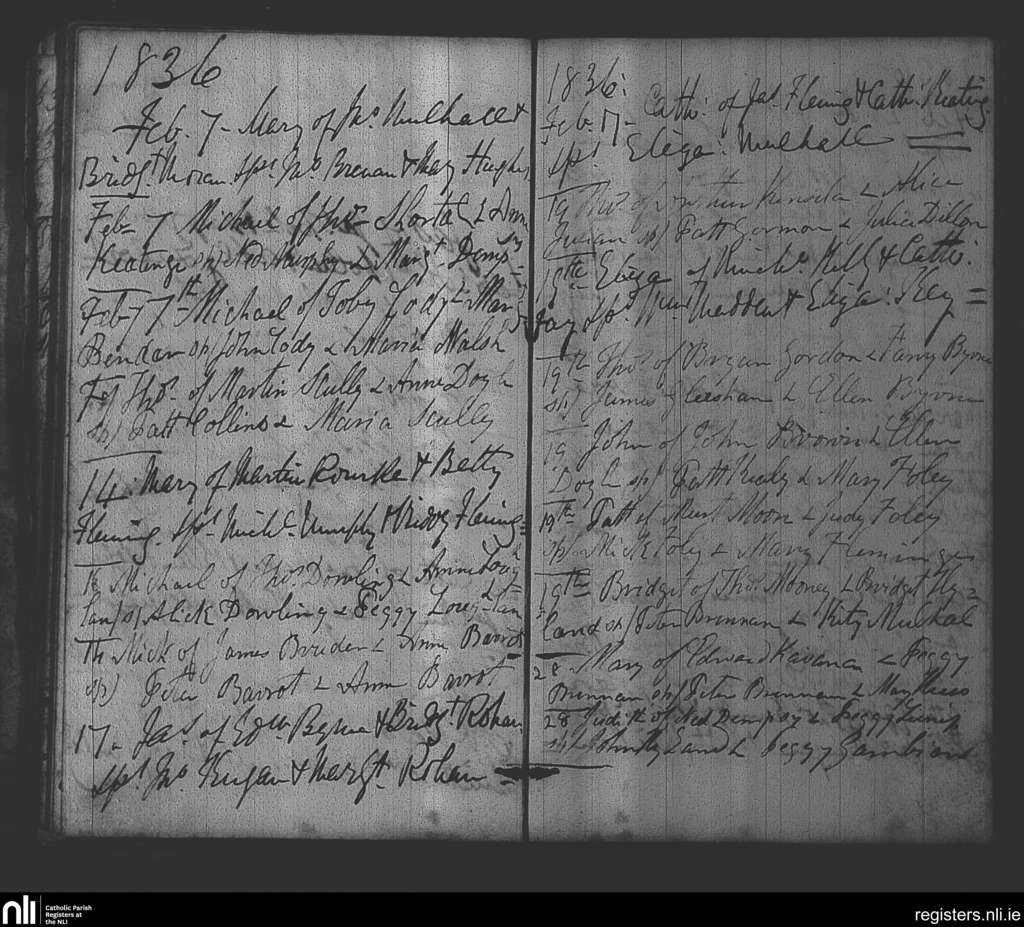 1836
Feb. 7 - Mary of Jno. Mulhall &
Bridgt. Moran. sps. Jno Brenan & Mary Hughes
Feb- 7 Michael of Thos. Shortal & Ann
Keatinge sp/ Ned Murphy & Margt. Demps=
Feb- 7 7th Michael of Toby Cody & Mary
sp/ John Cody & Maria Walsh
Thos. of Martin Scully & Anne Doyle
sp/ Patt Collins & Maria Scully
14. Mary of Martin Rourke & Betty
Fleming. sps. Michl. Murphy & Biddy Fleming=
Michael of Thos. Dowling & Anne
sp/ Alick Dowling & Peggy
Mick of James & Anne Barrot
sp/ Peter Barrot & Ann Barrot
17. Jas. of Byrne & Bridgt. Rohan
sps. Jno. & Margt. Rohan
1836:
Feb. 17- Cath: of Jas. Fleming & Cath: Keating.
sps. Eliza: Mulhall
19 Thos. of & Alice
sp/ Patt Gorman & Julia Dillon
19th- Eliza of Michl. Kelly & Cath:
sps. Wm Madden & Eliza:
19th Thos. of Gordon & Fanny Byrne
sp/ James Gleeshan & Ellen Byrne
19 John of John Brown & Ellen
Doyle sp/ Patt Kealy & Mary Foley
19th Patt of Murt Moon & Judy Foley
sp/ Mick Foley & Mary Fleming
19th Bridget of Thos. Mooney & Bridget Hy=
land sp/ Peter Brennan & Kity Mulhal
28 Mary of Edward Kavanan & Peggy
Brennan sp/ Peter Brennan & Mary
28 Judith of Ned Dempsy & Peggy
sp/ John Hyland & Peggy
nli
Catholic Parish
Registers at
the NLI
registers.nli.ie